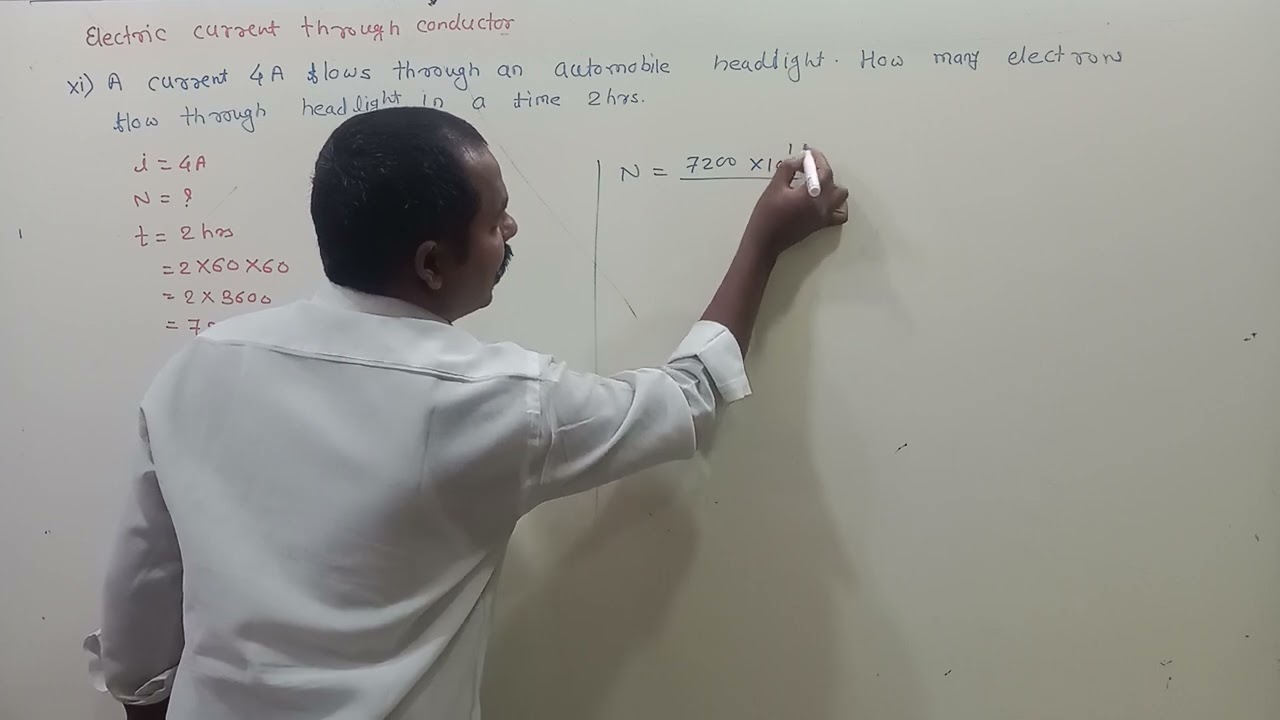 Electric current through conductor
xi) A current 4A flows through an automobile headlight. How many electrons
flow through headlight in a time 2hrs.
i = 4A
N = ?
t = 2 hrs
= 2 X 60 X 60
= 2 X 3600
= 7
N = 7200 X 10